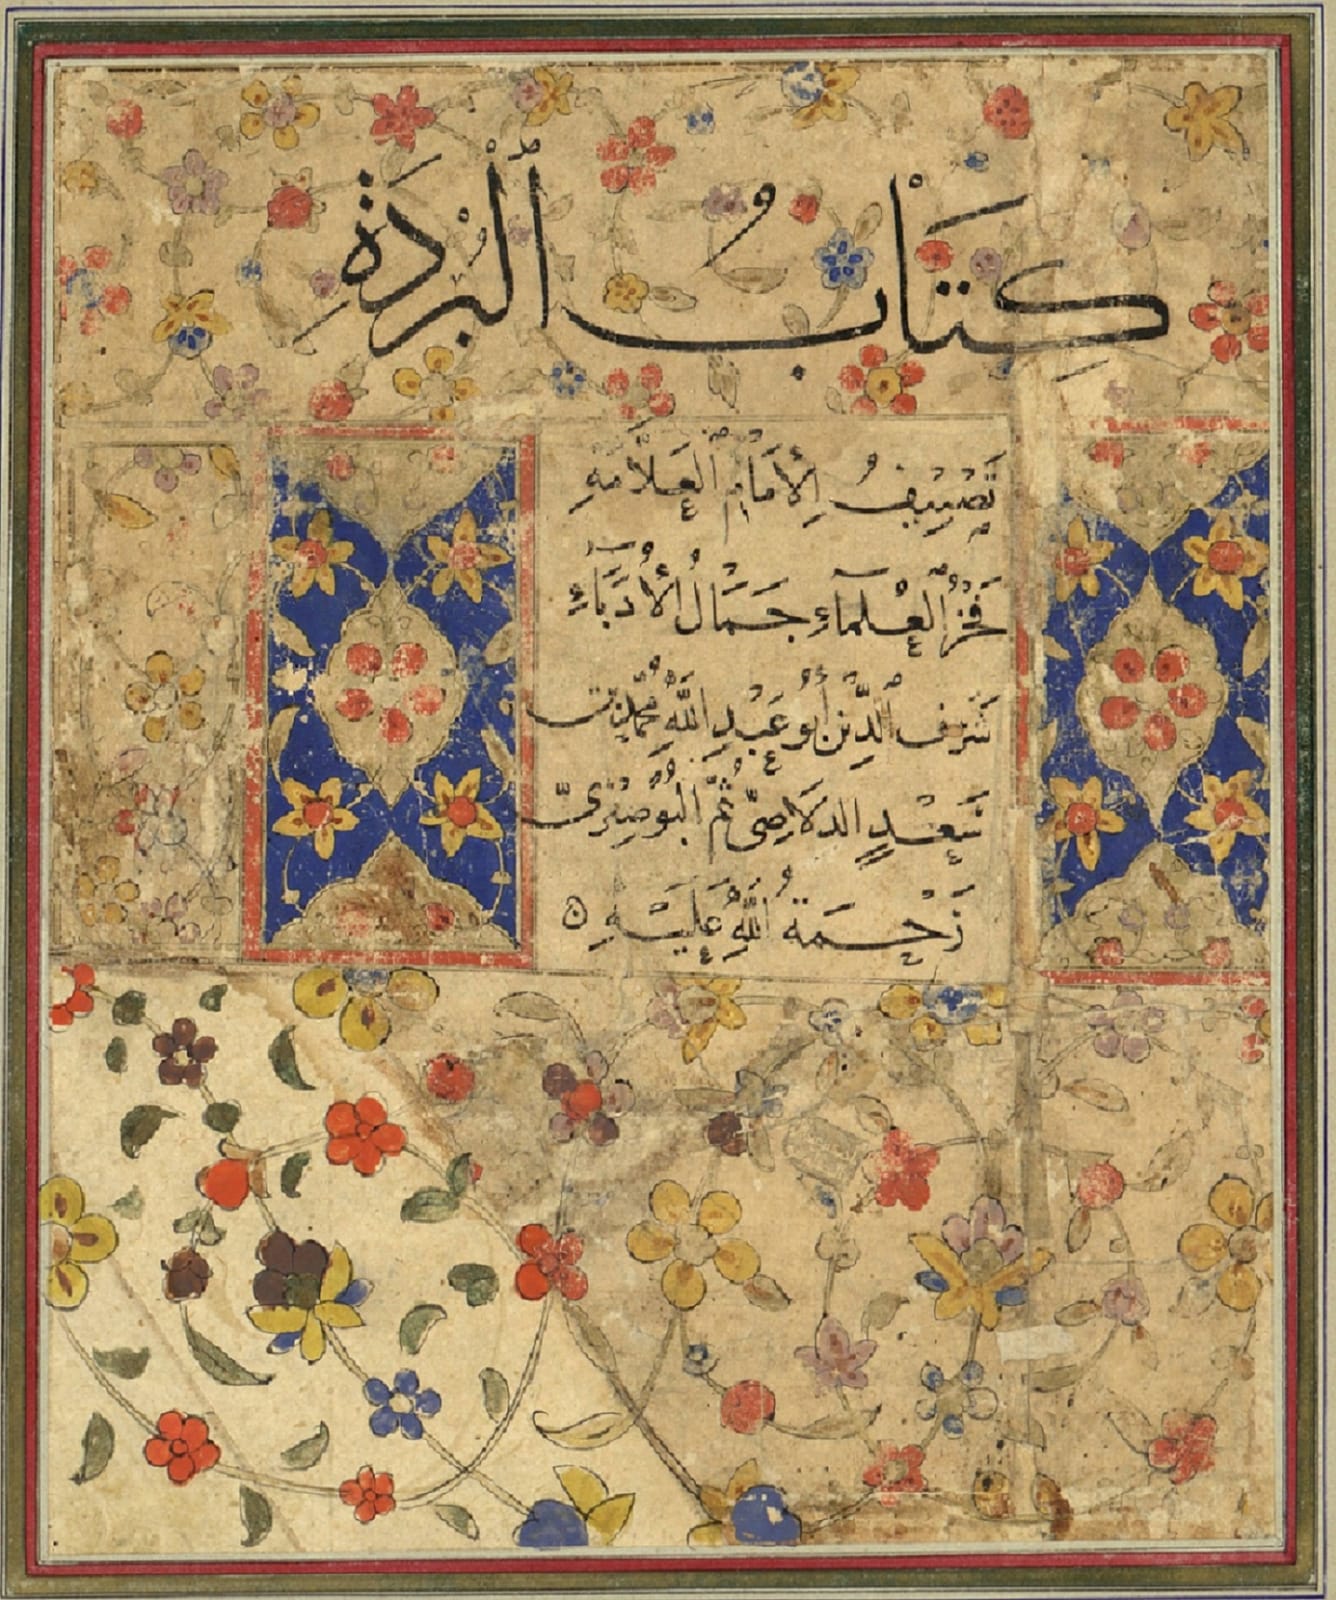 كِتَابُ ٱلْبُرْدَةِ
تَصْنِيفُ الْإِمَامِ الْعَلَّامَةِ
فَخْرُ الْعُلَمَاءِ جَمَالُ الْأُدَبَاءِ
شَرَفُ الدِّينِ أَبُو عَبْدِ اللَّهِ مُحَمَّدِ بْنِ
سَعْدٍ الدَّلَاصِيِّ ثُمَّ الْبُوصِيْرِيِّ
رَحْمَةُ اللَّهِ عَلَيْهِ